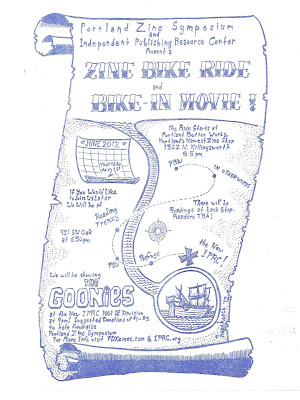 Portland Zine Symposium
and
Independent Publishing Resource Center
Present a
ZINE BIKE RIDE
and
BIKE-IN MOVIE!
JUNE 2012
Thursday
The Ride Starts at
Portland Button Works,
Portland's Newest Zine Shop
1322 N. Killingsworth
@ 5 pm
PBW
If You Would Like
to Join Us Later
We will be at
Reading
Frenzy
921 SW Oak
at 6:30pm
There will be
Readings at Each Stop.
Readers TBA!
PSU
Refuge
the New
IPRC!
We will be showing
THE
GOONIES
at the New IPRC 1001 SE Division
at 9pm! Suggested Donations of $1-$5
to help fundraise
Portland Zine Symposium
For More Info visit PDXzines.com & IPRC.org